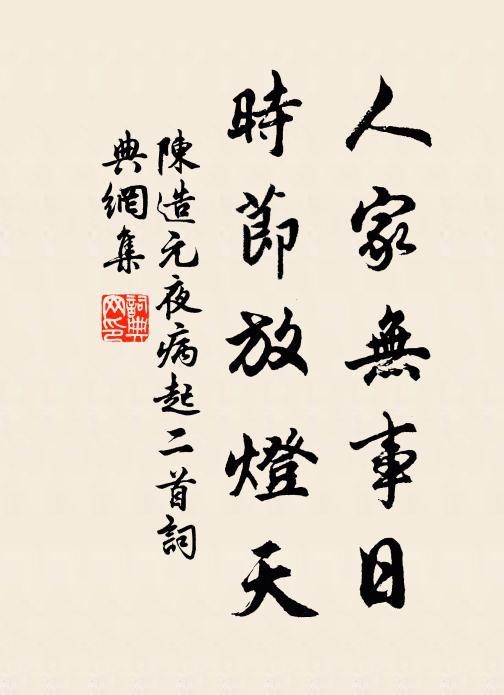 人家無事日
時節放燈天
陳造元夜病起二首詞
典網集
詞典网印